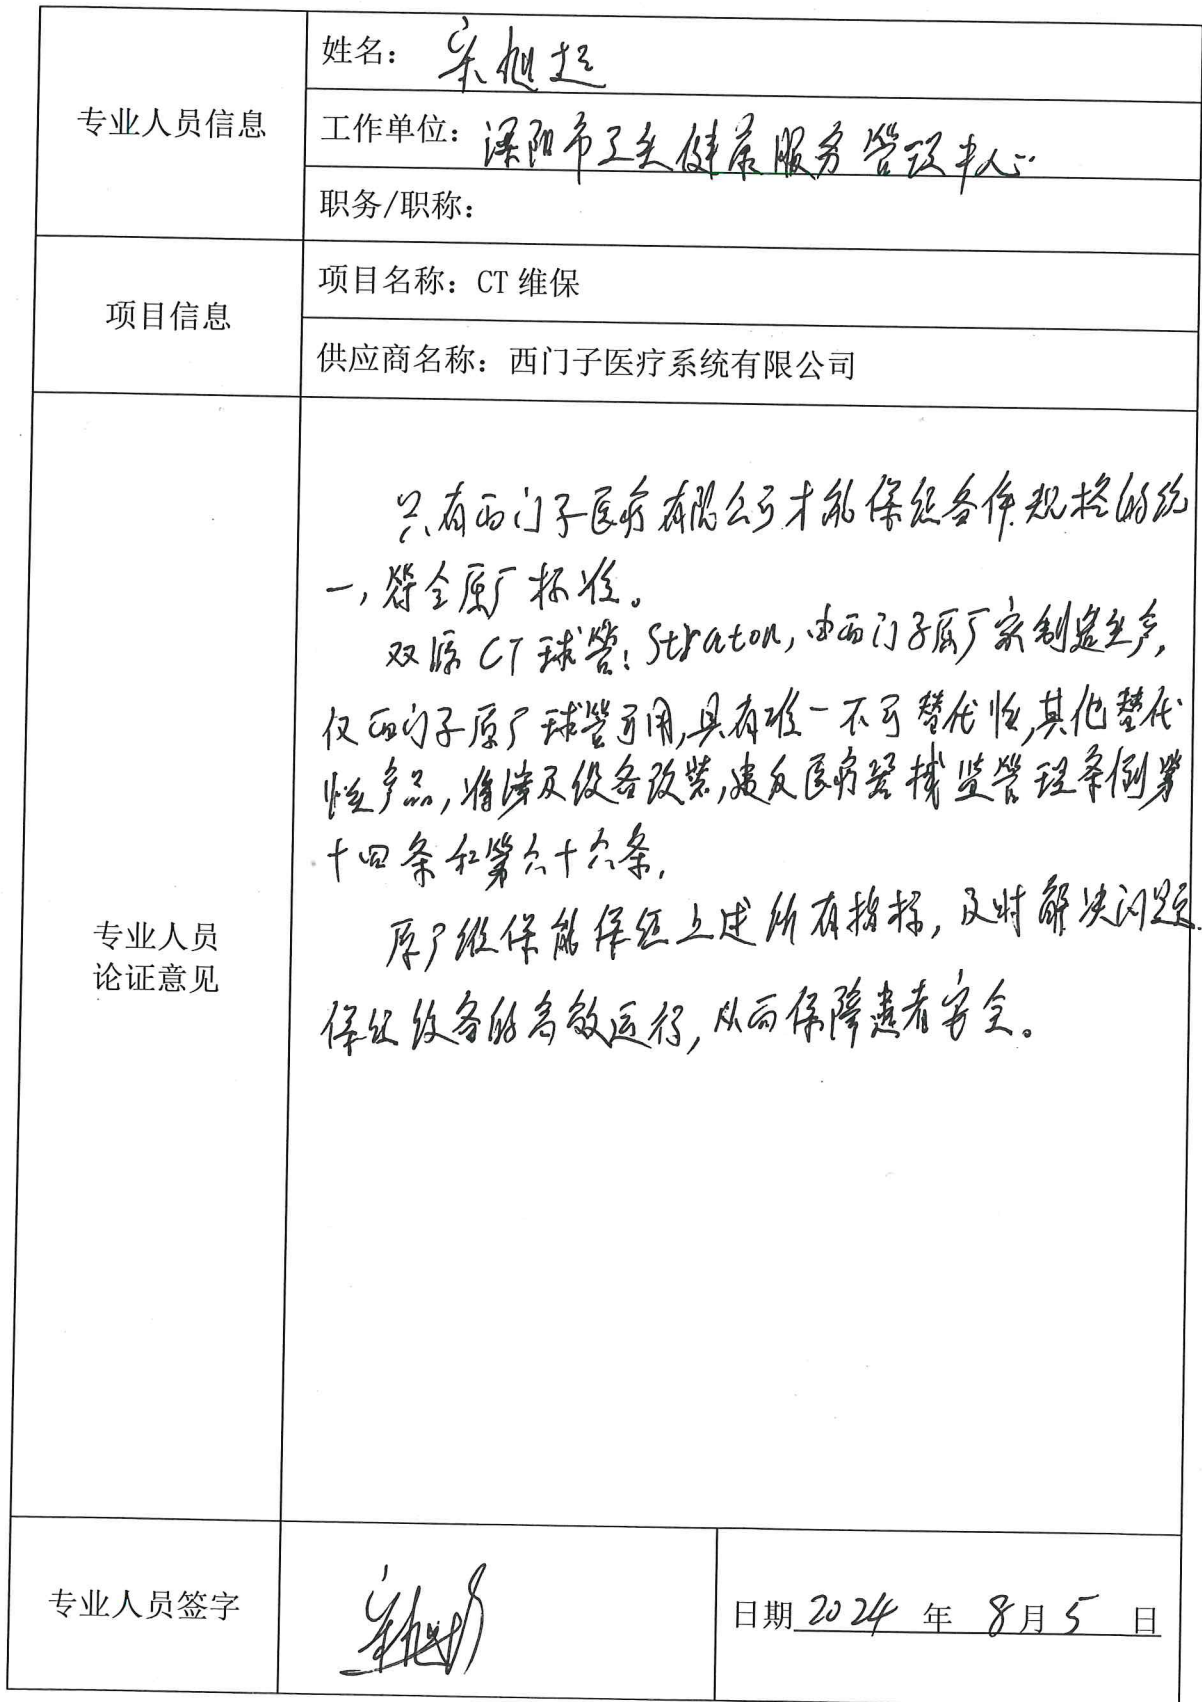 专业人员信息
姓名：宋旭超
工作单位：溧阳市卫生健康服务管理中心
职务/职称：
项目信息
项目名称：CT 维保
供应商名称：西门子医疗系统有限公司
专业人员
论证意见
只有西门子医疗有限公司才能保证备件规格的统
一，符合原厂标准。
双源CT球管：Straton，由西门子原厂家制造生产，
仅西门子原厂球管可用，具有唯一不可替代性，其他替代
性产品，将涉及设备改装，违反医疗器械监管理条例第
十四条和第六十六条。
原厂维保能保证上述所有指标，及时解决问题.
保证设备的高效运行，从而保障患者安全。
专业人员签字
日期 2024 年 8月5 日